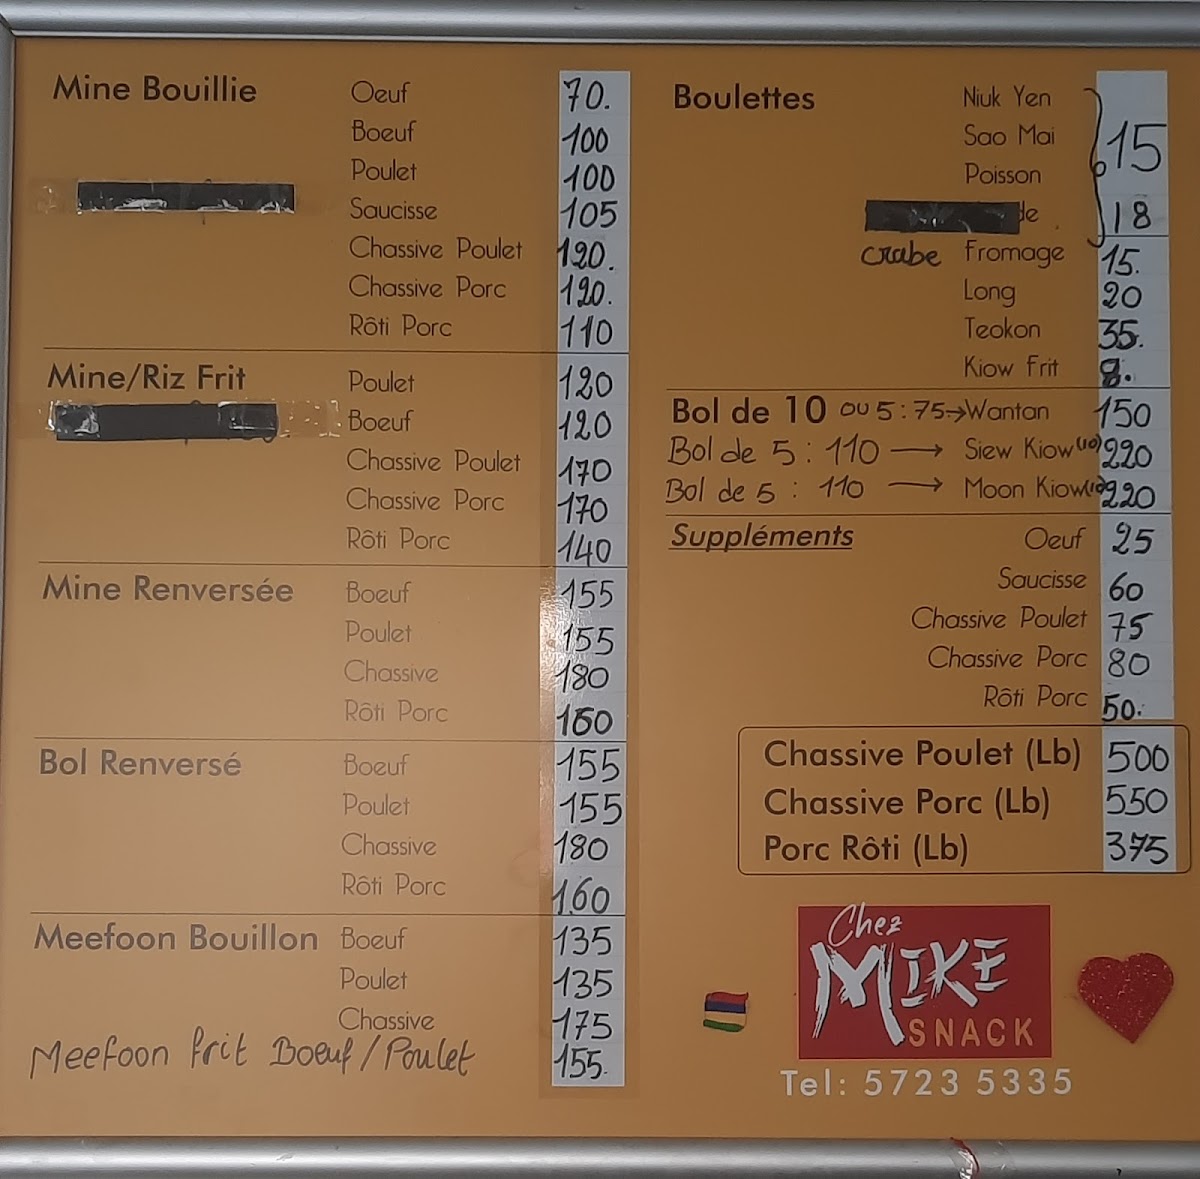 Mine Bouillie Oeuf 70.
Boeuf 100
Poulet 100
Saucisse 105
Chassive Poulet 120.
Chassive Porc 120.
Rôti Porc 110
Mine/Riz Frit Poulet 120
Boeuf 120
Chassive Poulet 170
Chassive Porc 170
Rôti Porc 140
Mine Renversée Boeuf 155
Poulet 155
Chassive 180
Rôti Porc 160
Bol Renversé Boeuf 155
Poulet 155
Chassive 180
Rôti Porc 160
Meefoon Bouillon Boeuf 135
Poulet 135
Chassive 175
Meefoon frit Boeuf/Poulet 155.
Boulettes Niuk Yen
Sao Mai 15
Poisson
de 18
crabe Fromage 15.
Long 20
Teokon 35.
Kiow Frit 8.
Bol de 10 ou 5 : 75 → Wantan 150
Bol de 5 : 110 → Siew Kiow (10) 220
Bol de 5 : 110 → Moon Kiow (10) 220
Suppléments Oeuf 25
Saucisse 60
Chassive Poulet 75
Chassive Porc 80
Rôti Porc 50.
Chassive Poulet (Lb) 500
Chassive Porc (Lb) 550
Porc Rôti (Lb) 375
Chez
MIKE
SNACK
Tel: 5723 5335